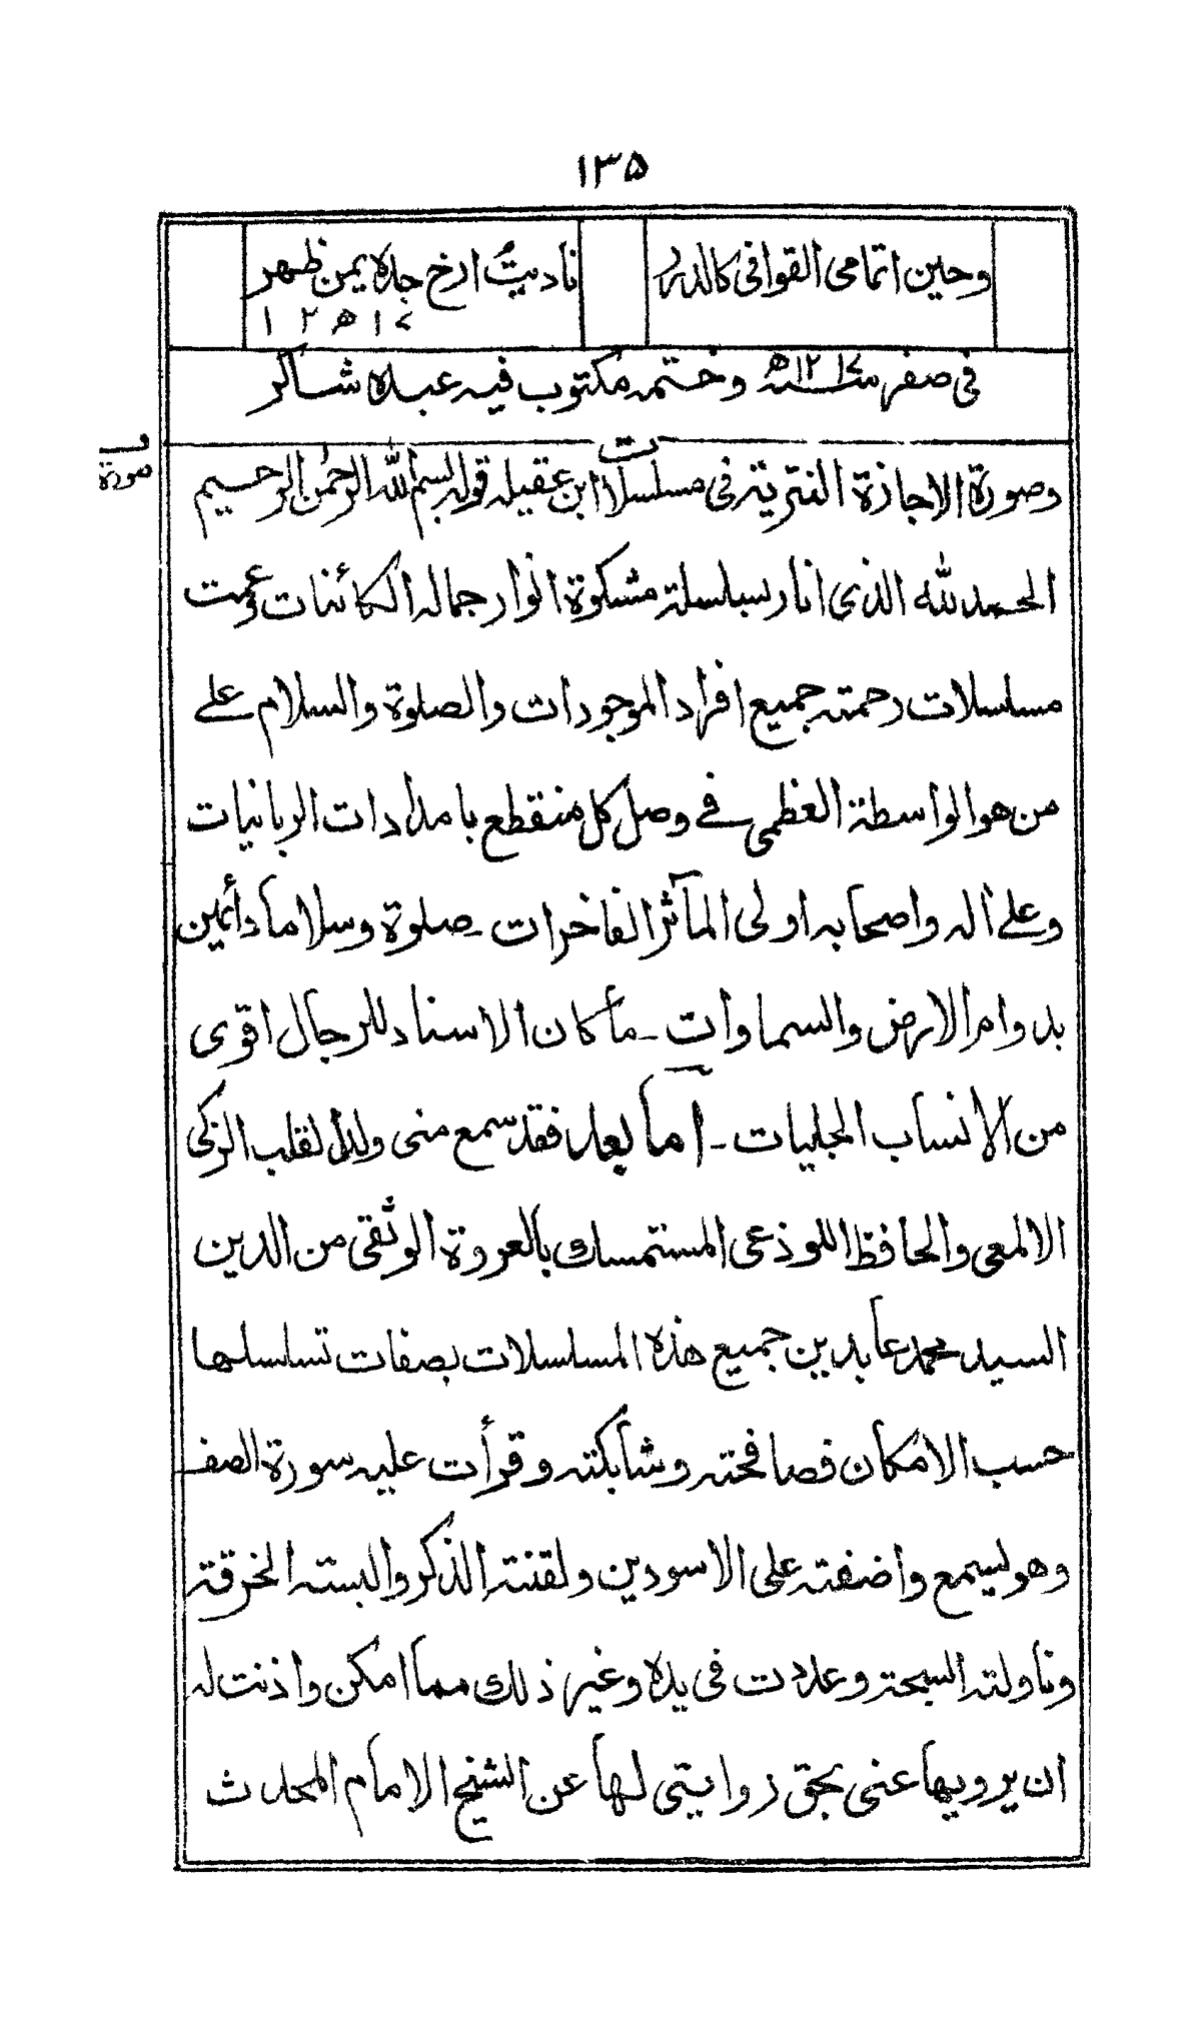 ١٣٥
وحين اتمامى القوافى كالدرر ناديت ارخ جده يمن ظهر
١٢١٧ھ
فى صفر سنة ١٢١٧ھ وختمه مكتوب فيه عبده شاكر
وصورة
وصورة الاجازة النثرية فى مسلسلات ابن عقيله قوله بسم الله الرحمن الرحيم
الحمد لله الذى انار بسلسلة مشكوة انوار جماله الكائنات وعمت
مسلسلات رحمته جميع افراد الموجودات والصلوة والسلام على
من هو الواسطة العظمى فى وصل كل منقطع بامدادات الربانيات
وعلى اله واصحابه اولى المآثر الفاخرات ـ صلوة وسلاما دأئمين
بدوام الارض والسماوات ـ ما كان الاسناد للرجال اقوى
من الانساب الجليات ـ اما بعد فقد سمع منى ولد القلب الزكى
الالمعى والحافظ اللوذعى المستمسك بالعروة الوثقى من الدين
السيد محمد عابدين جميع هذه المسلسلات بصفات تسلسلها
حسب الامكان فصافحته وشابكته وقرأت عليه سورة الصف
وهو يسمع واضفته على الاسودين ولقنته الذكر والبسته الخرقة
وناولته السبحة وعددت فى يده وغير ذلك مما امكن واذنت له
ان يرويها عنى بحق روايتى لها عن الشيخ الامام المحدث